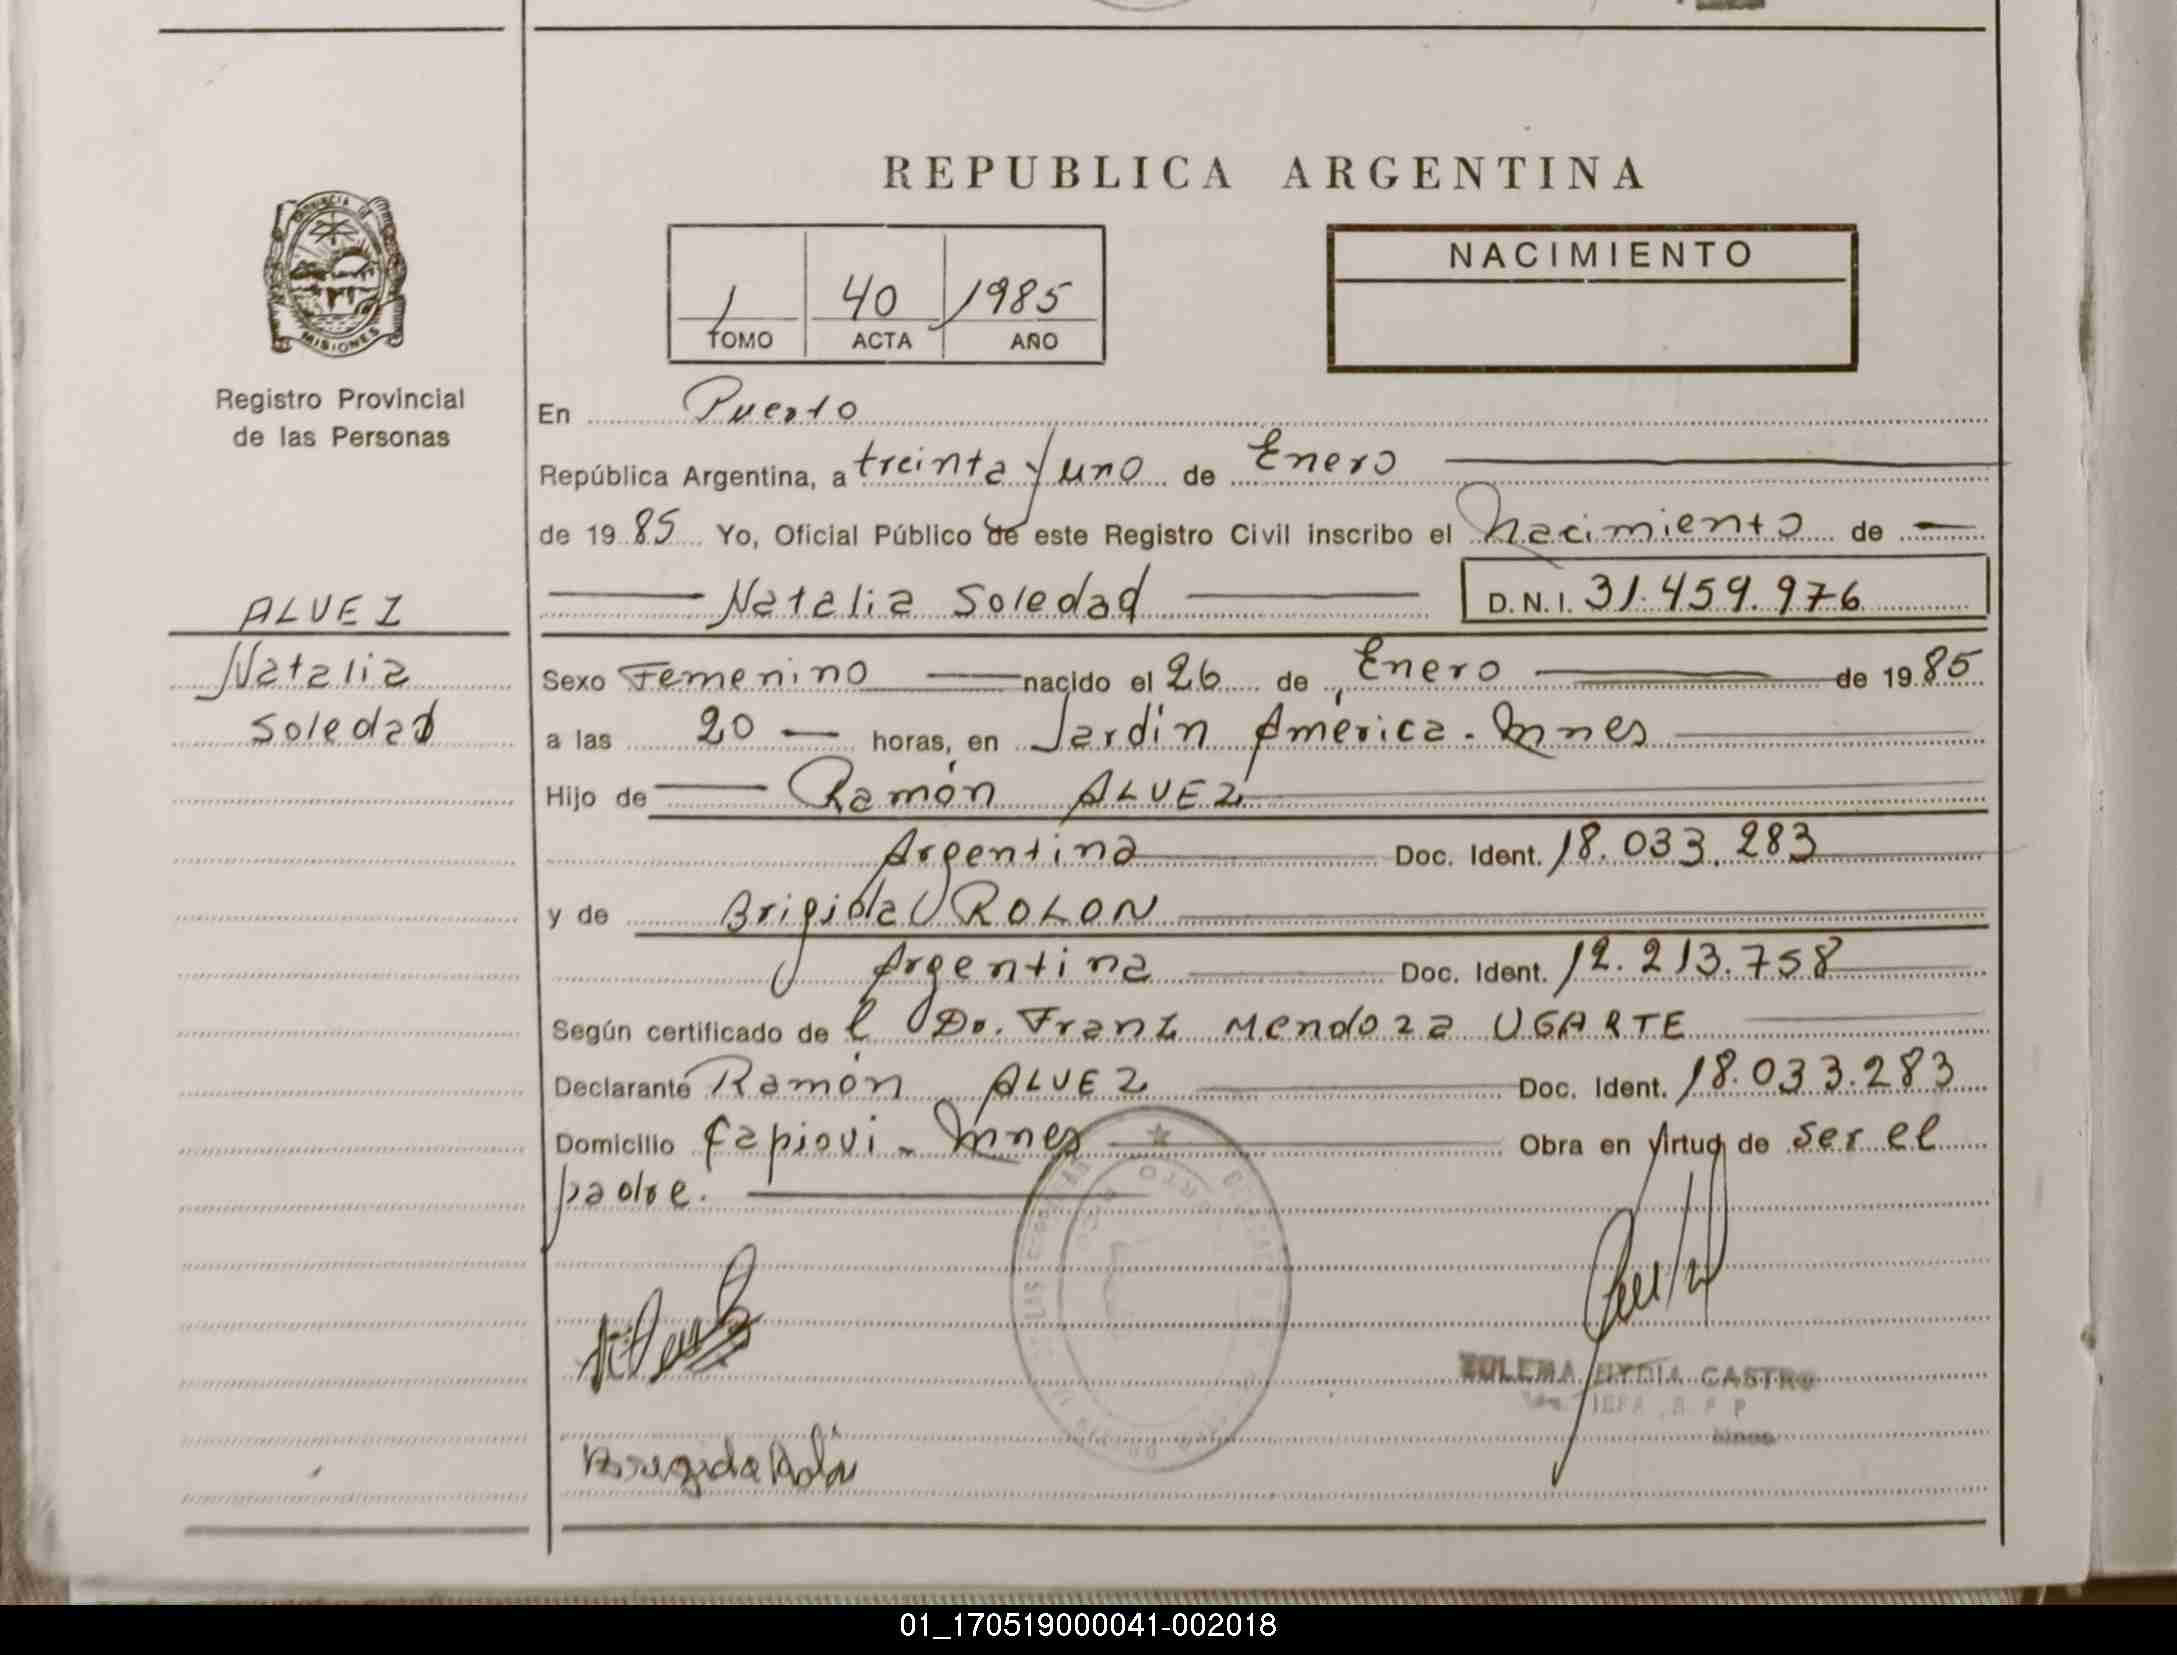 REPUBLICA ARGENTINA
PROVINCIA DE
MISIONES
Registro Provincial
de las Personas
1 40 1985
TOMO ACTA AÑO
NACIMIENTO
En Puerto
República Argentina, a treinta y uno de Enero
de 1985 Yo, Oficial Público de este Registro Civil inscribo el Nacimiento de
Natalia Soledad D.N.I. 31.459.976
ALVEZ
Natalia
Soledad
Sexo Femenino nacido el 26 de Enero de 1985
a las 20 horas, en Jardín América - Mnes
Hijo de Ramón ALVEZ
Argentina Doc. Ident. 18.033.283
y de Brigida ROLON
Argentina Doc. Ident. 12.213.758
Según certificado del Dr. Franz Mendoza UGARTE
Declarante Ramón ALVEZ Doc. Ident. 18.033.283
Domicilio Capiovi - Mnes Obra en virtud de ser el
padre.
CASTRO
01_170519000041-002018